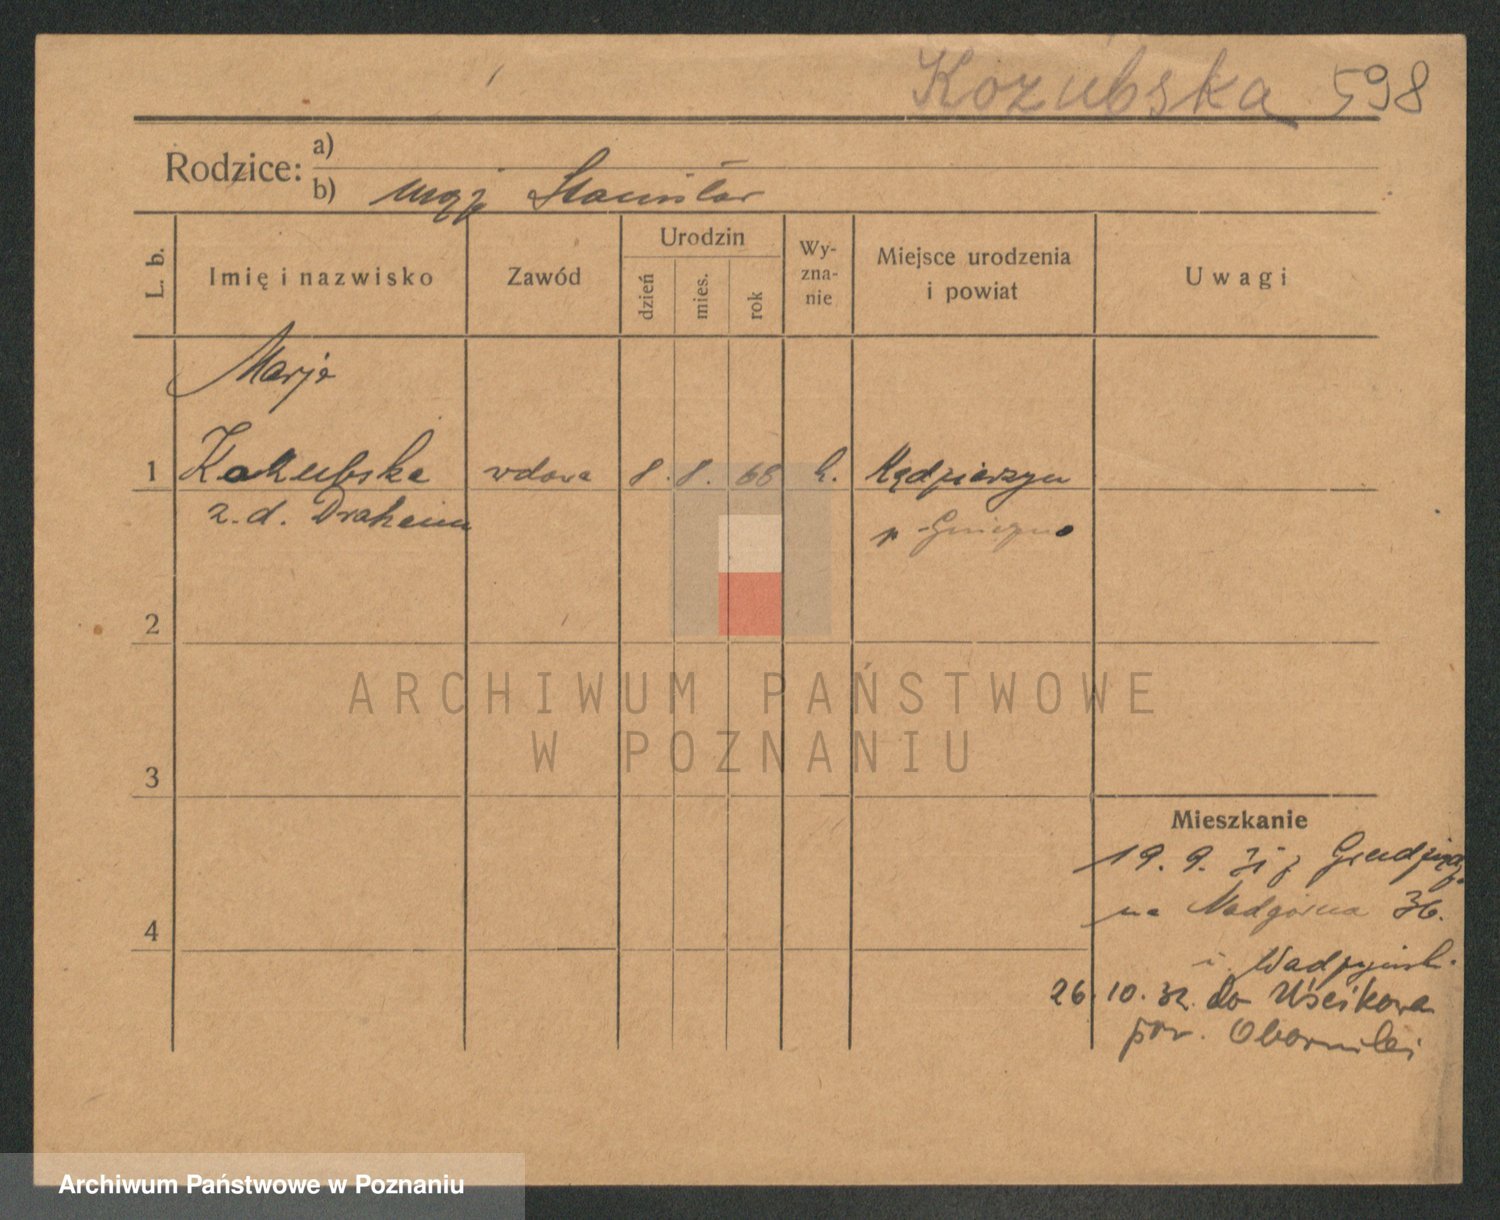 Kozubska 598
Rodzice: a)
b) mąż Stanisław
L. b.
Imię i nazwisko
Zawód
Urodzin
dzień
mies.
rok
Wy-
zna-
nie
Miejsce urodzenia
i powiat
Uwagi
Marja
1 Kozubska wdowa 8. 8. 68 k. Kędzierzyn
z. d. Draheim p Gniezno
2
3
4
Mieszkanie
19. 9. 31 z Grudziądz
na Nadgórna 36.
26. 10. 32. do Uścikowa
pow. Oborniki
ARCHIWUM PAŃSTWOWE
W POZNANIU
Archiwum Państwowe w Poznaniu